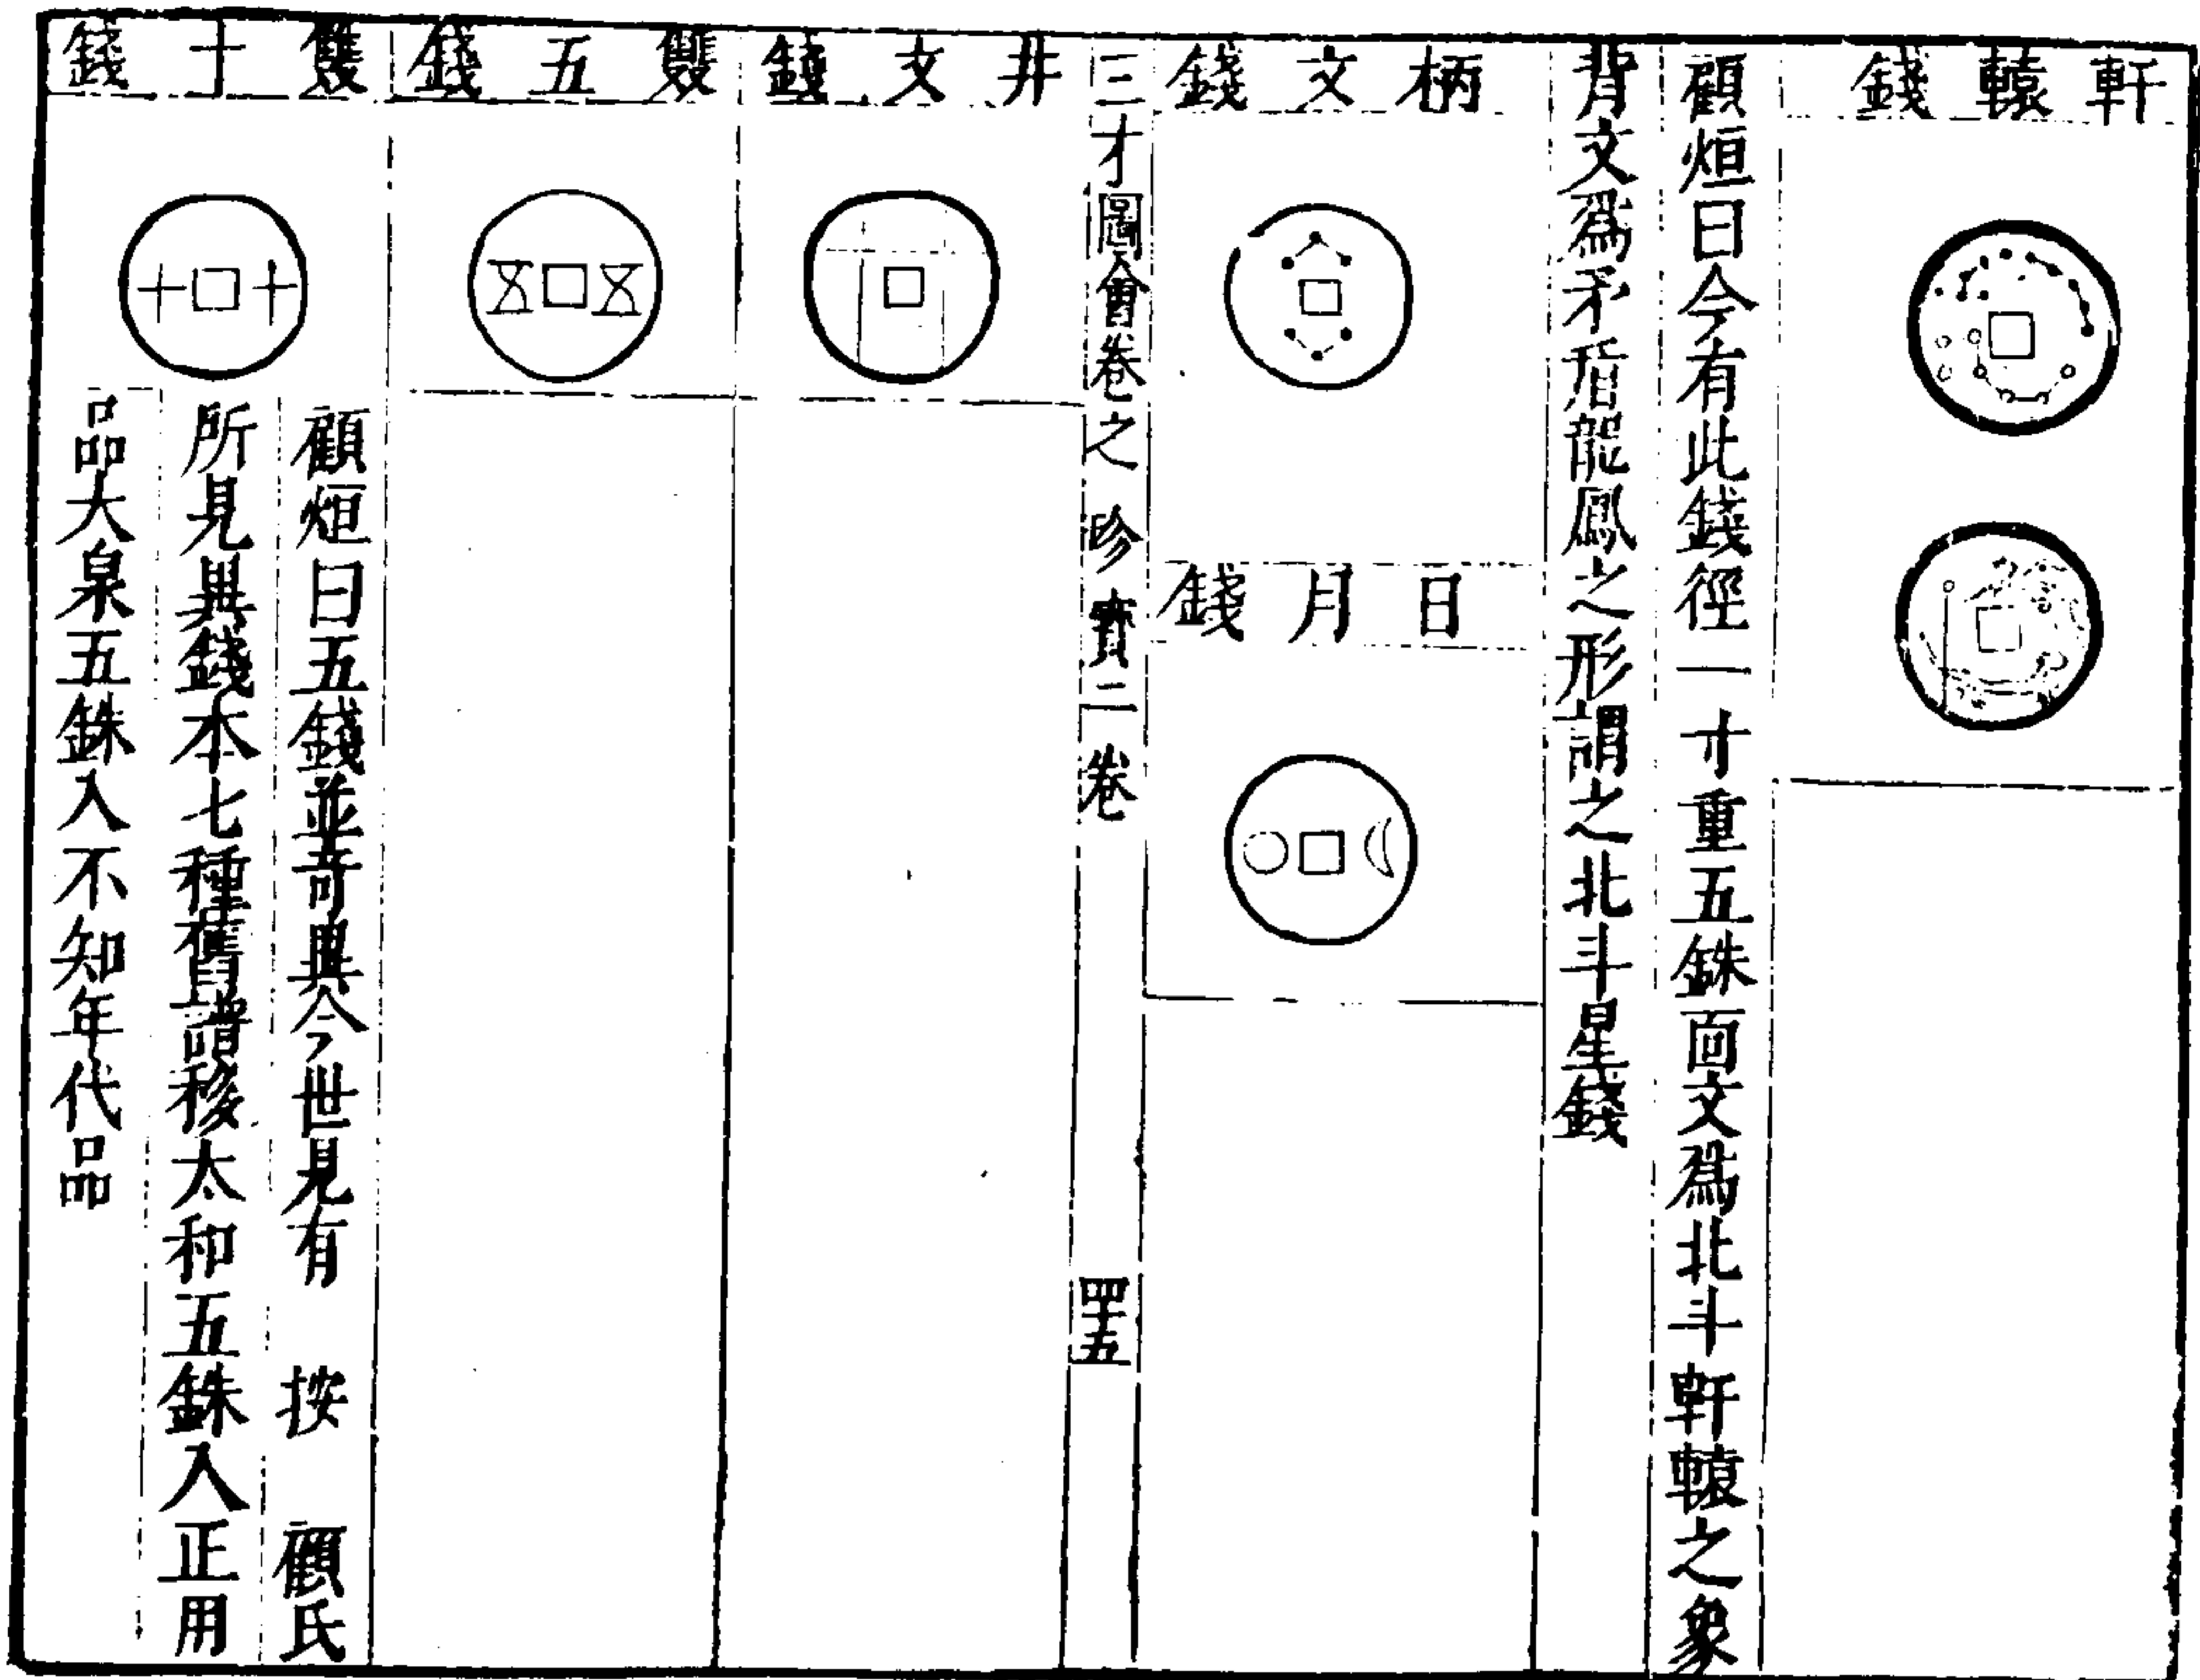 軒轅錢
顧烜曰今有此錢徑一寸重五銖面文爲北斗軒轅之象
背文爲矛盾龍鳳之形謂之北斗星錢
柄文錢
日月錢
三才圖會卷之 珍寶二卷 四十五
井文錢
雙五錢
雙十錢
顧烜曰五錢並奇異今世見有 按 顧氏
所見異錢本七種舊譜移太和五銖入正用
品大泉五銖入不知年代品